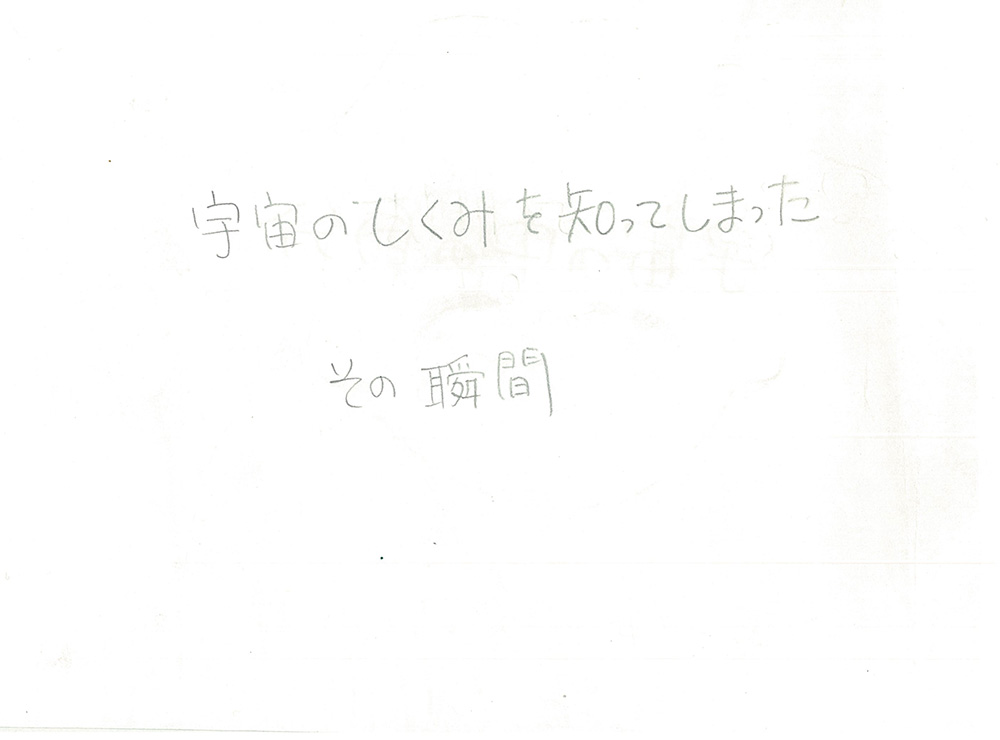 宇宙のしくみを知ってしまった
その瞬間